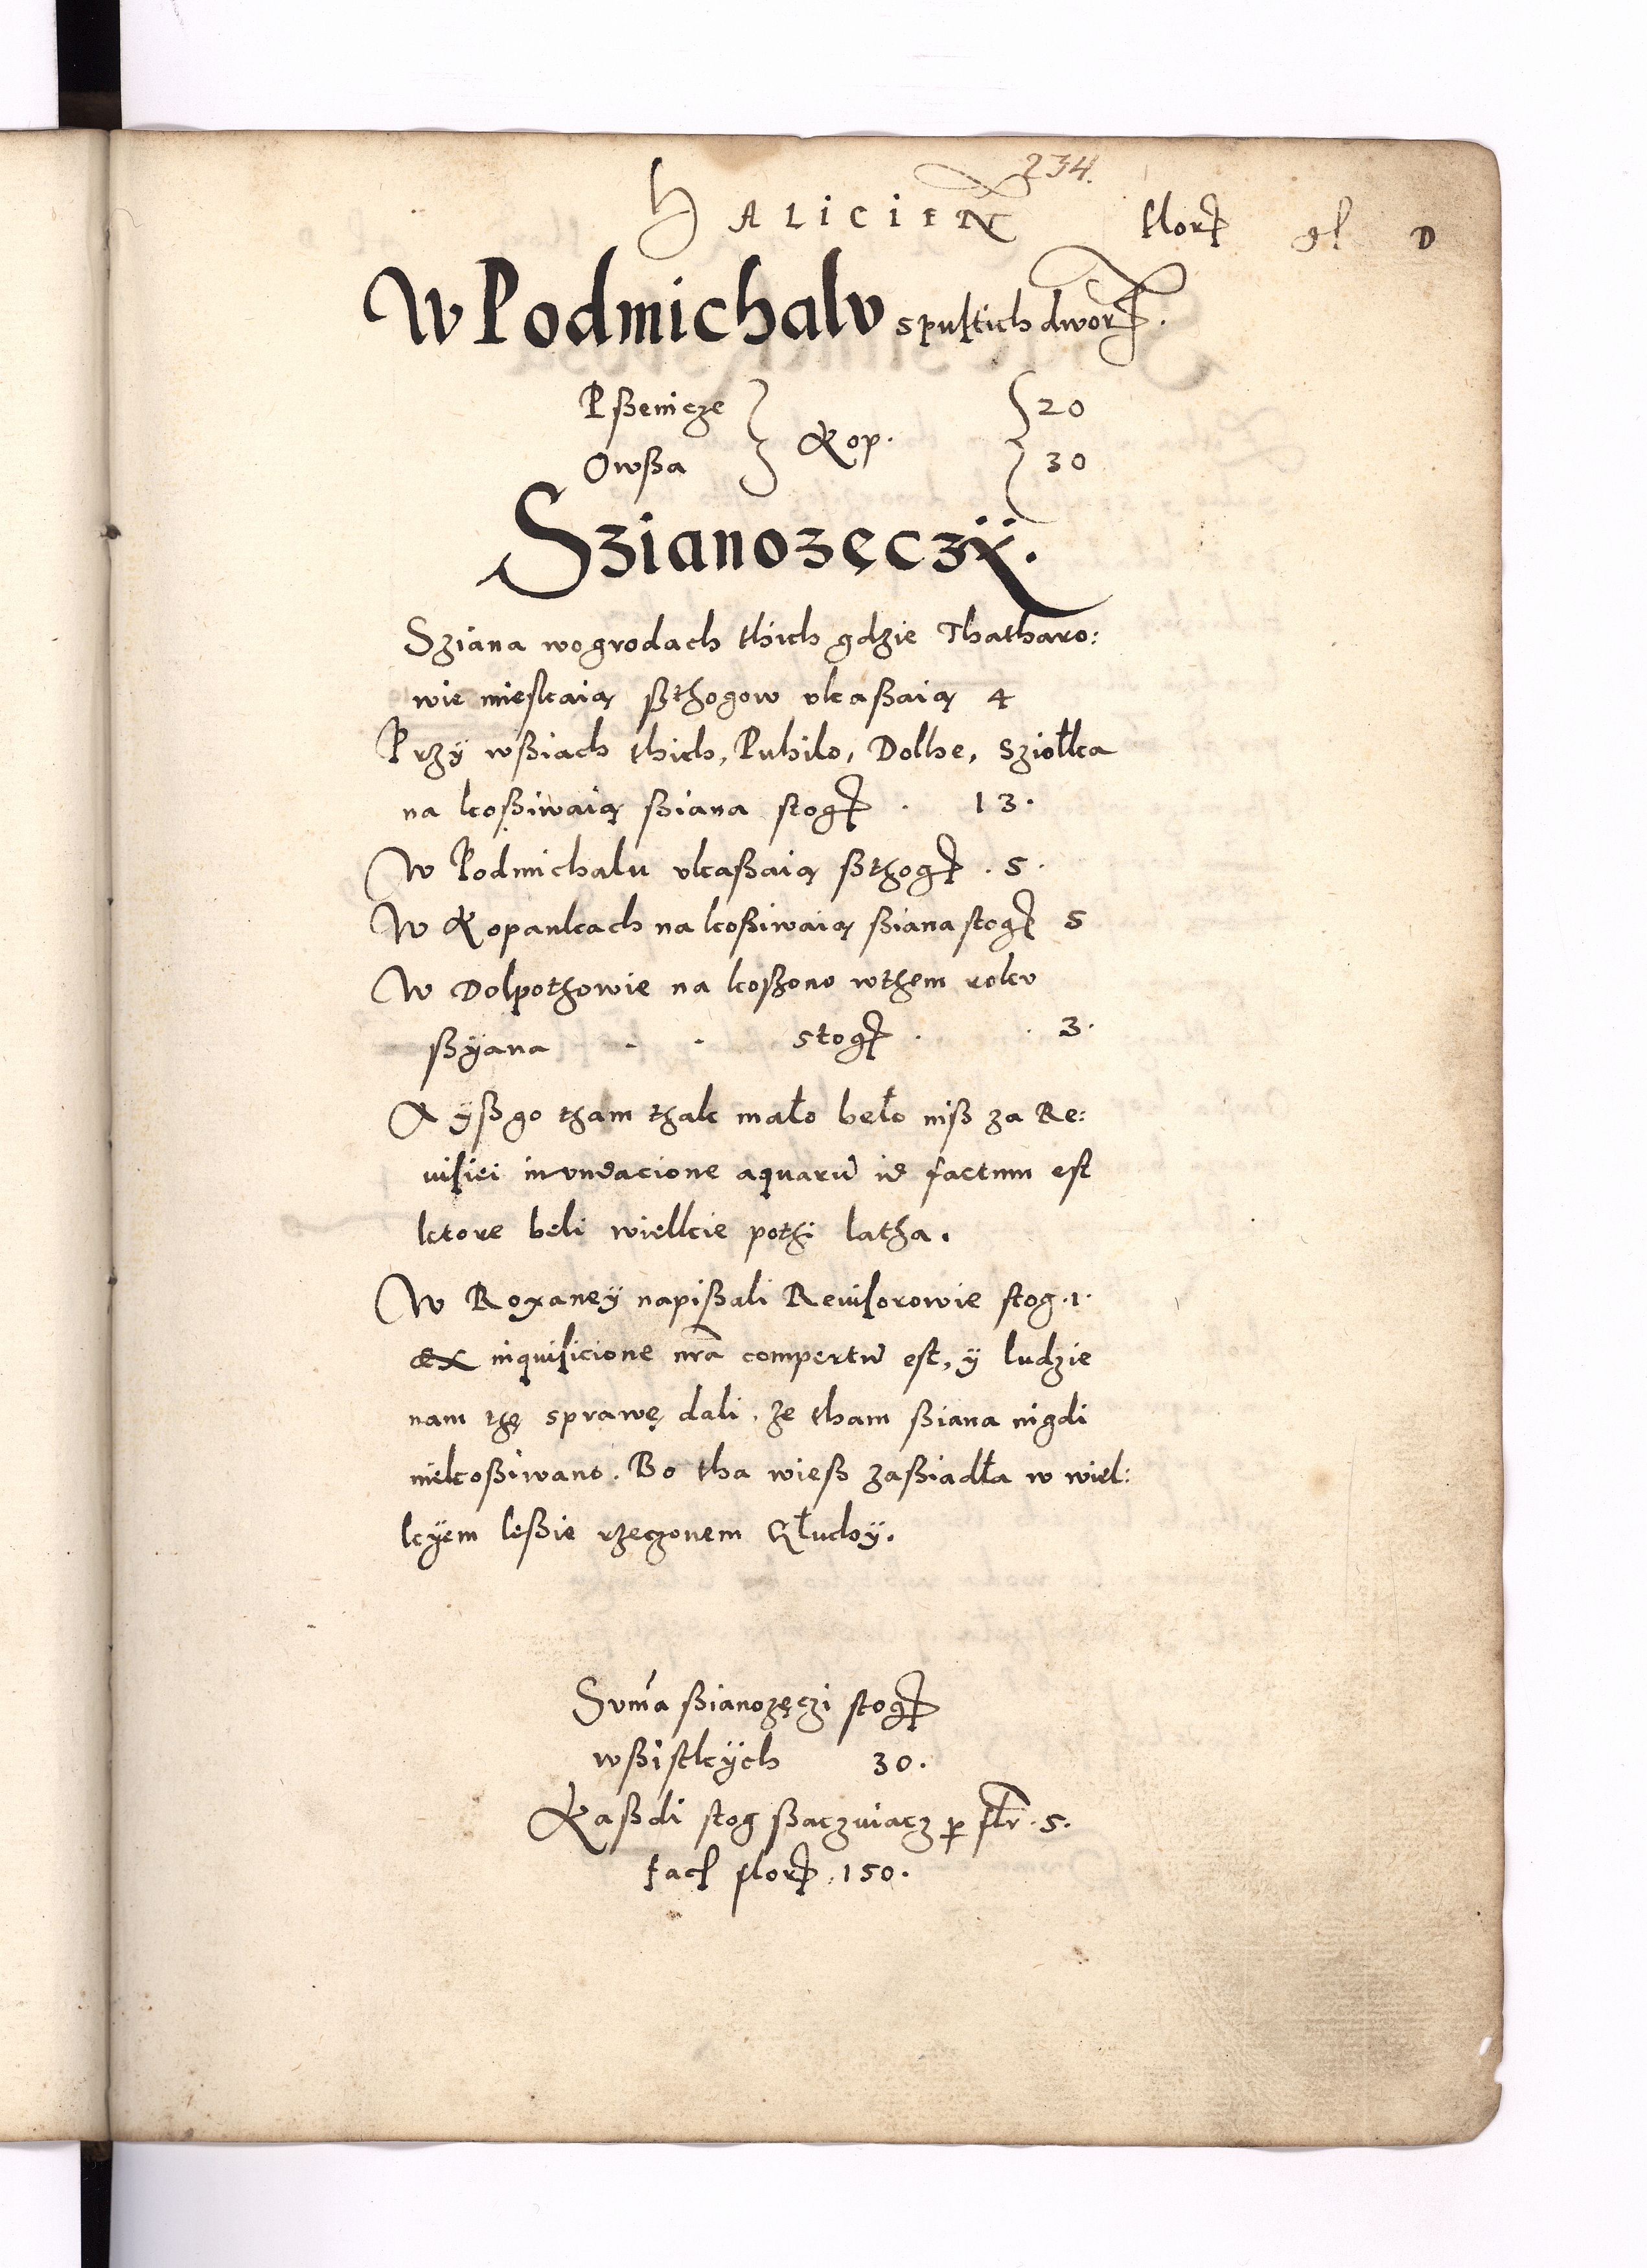 234.
HALICIEN
flor gl D
W Podmichalv spustich dwor.
Pßenicze } Kop. { 20
Owßa } { 30
Szianozęczÿ.
Sziana wogrodach thich gdzie Thatharo:
wie mieskaią ßthogow vkaßaią 4
Przÿ wßiach thich, Puhilo, Dolhe, Sziołka
na koßiwaią ßiana stog . 13.
W Podmichalu vkaßaią ßthog . 5.
W Kopankach na koßiwaią ßiana stog 5
W Dolpothowie na koßono wthem rokv
ßÿana . . stog . . 3.
A yßgo tham thak mało beło niß za Re:
uisiei invndacione aquarū id factum est
ktore beli wielkie pothi latha.
W Roxaneÿ napißali Reuisorowie stog .1.
ex inquisicione nrã compertū est, ÿ ludzie
nam thę sprawę dali, że tham ßiana nigdi
niekoßiwano. Bo tha wieß zaßiadła w wiel:
kÿem leßie rzeczonem Głuchÿ.
Svm̃a ßianozęczi stog
wßistkÿch 30.
Kaßdi stog ßaczuiacz p flr. 5.
facſ flor .150.